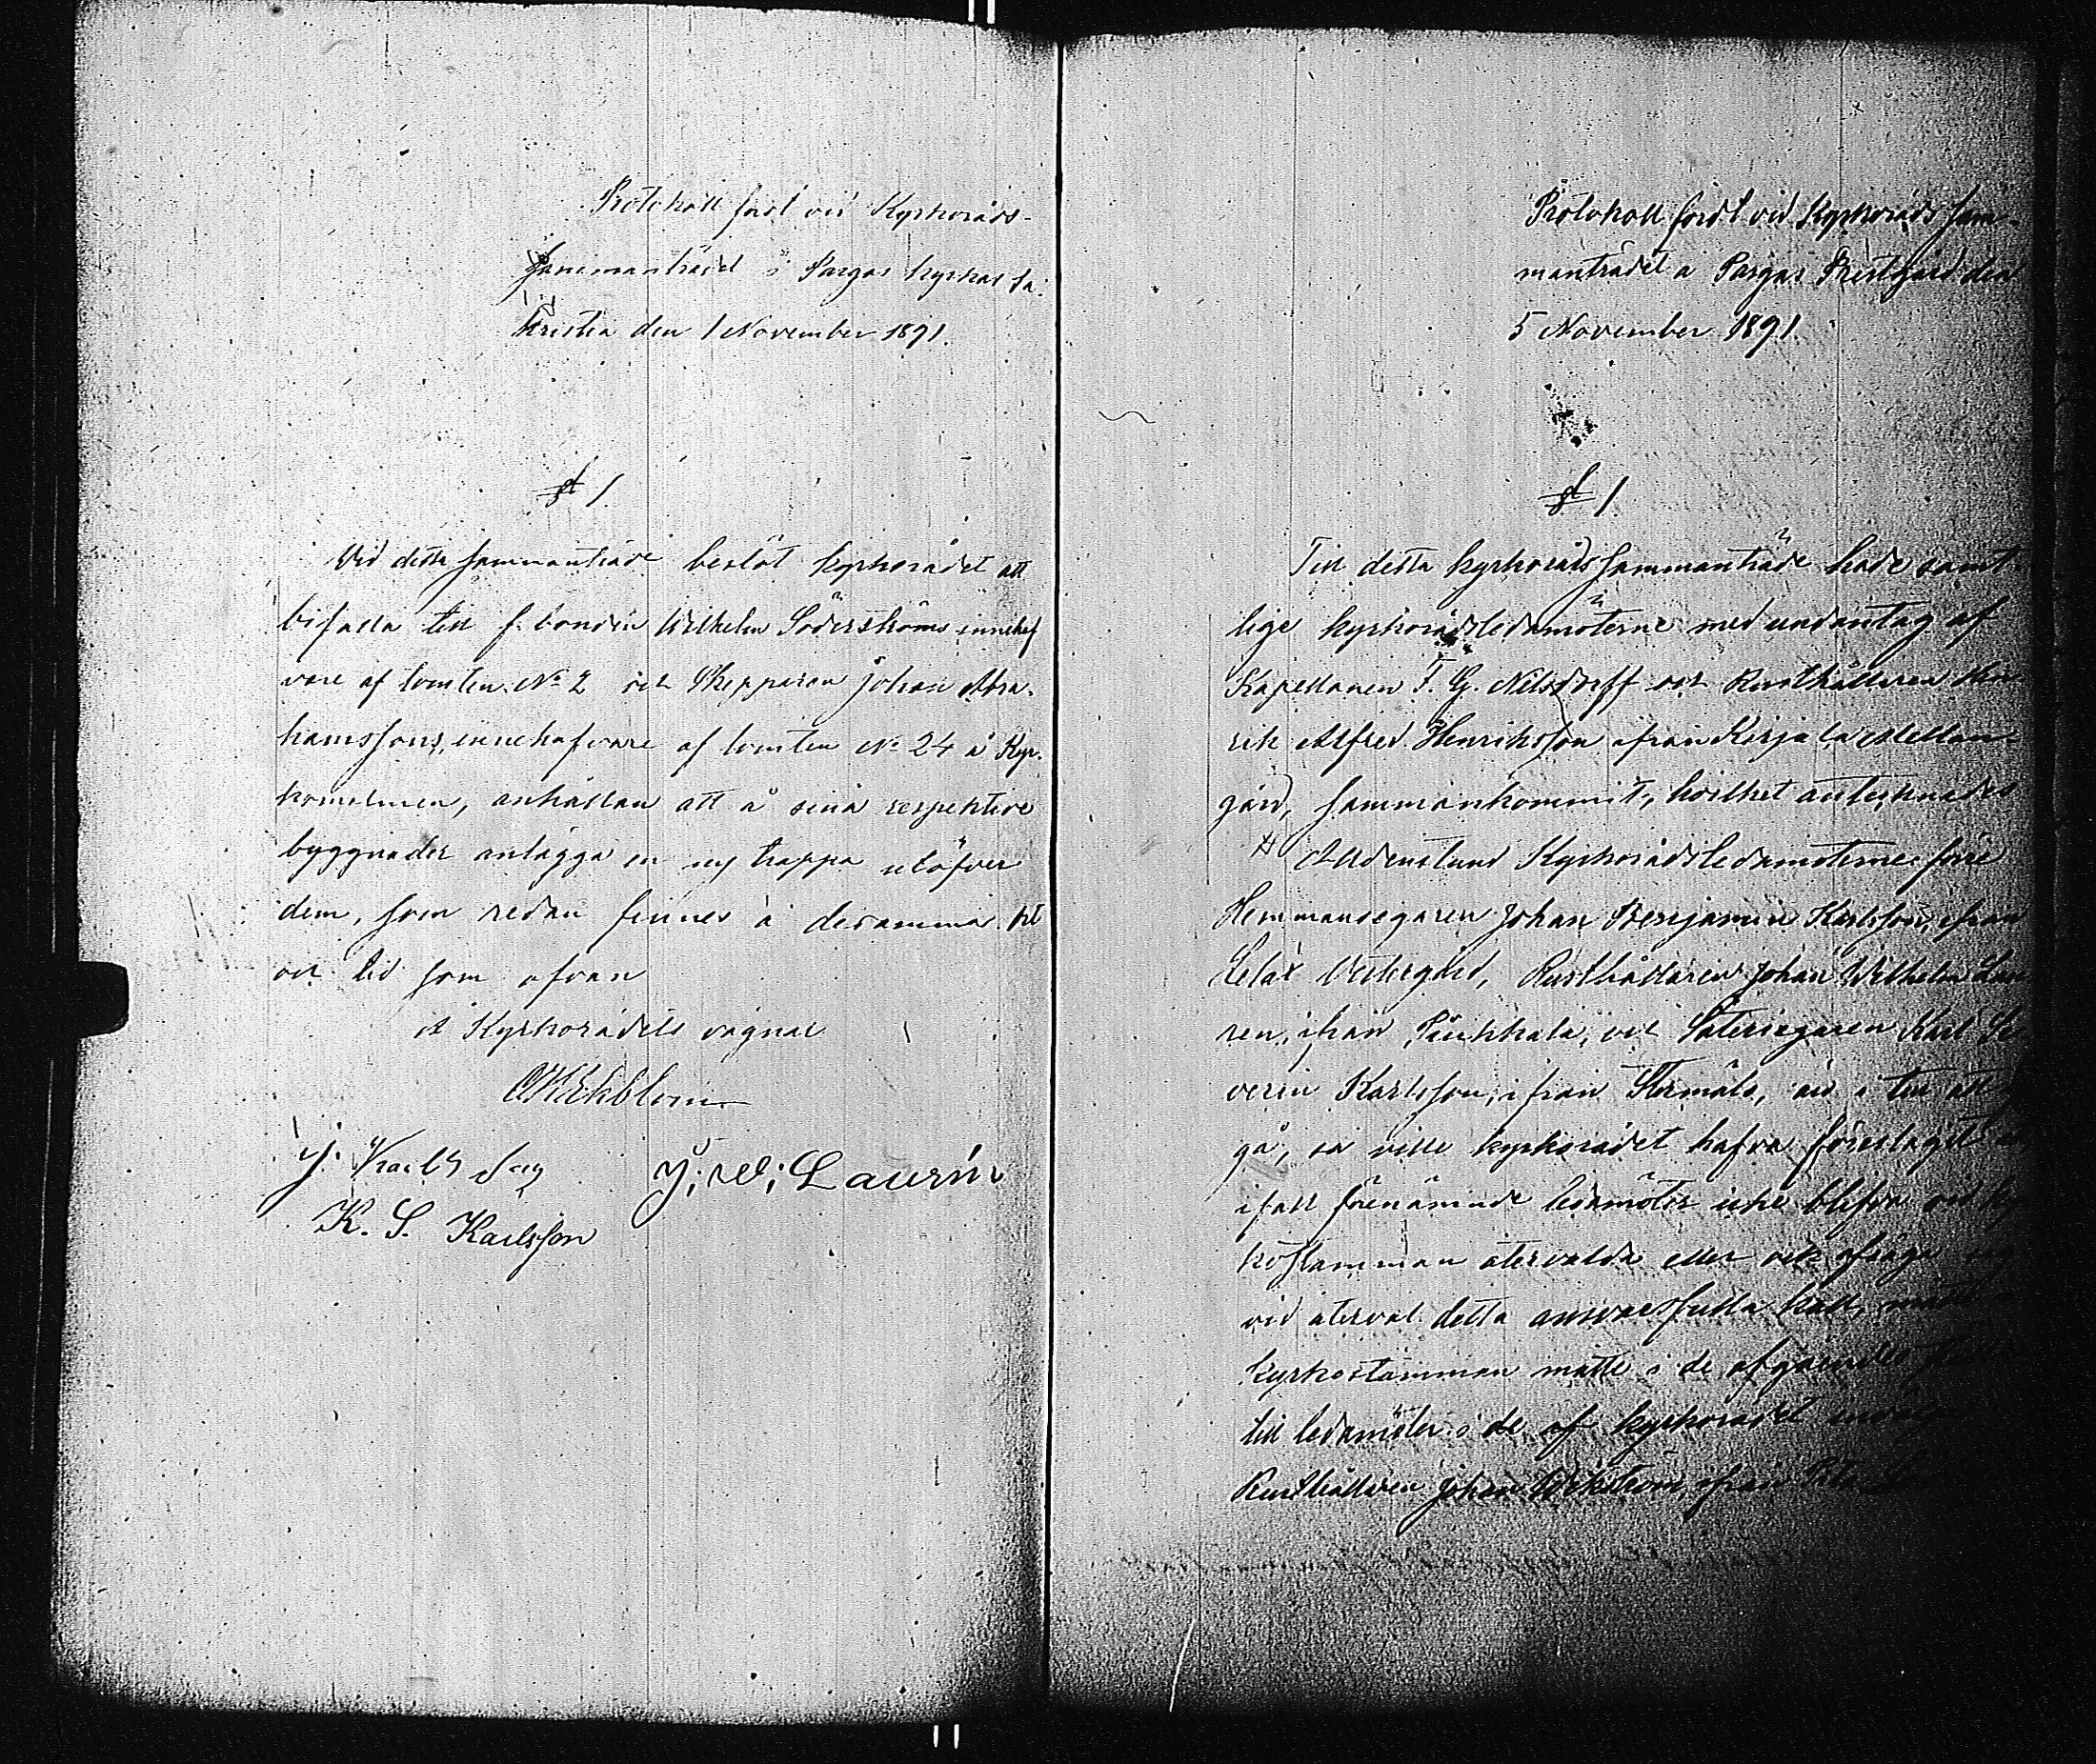 Protokoll fördt vid Kyrkoråds-
sammanträdet i Pargas kyrkas sa-
kristia den 1 November 1891.
§ 1.
Vid detta sammanträde beslöt kyrkorådet att
bifalla till f. bonden Wilhelm Söderströms innehaf
vare af tomten No 2 och Skepparen Johan Abra-
hamssons, innehafvare af tomten No 24 å Kyr-
koholmen, anhållan att å sina respektive
byggnader anlägga en ny trappa utöfver
dem, som redan finnes å desamma. År
och tid som ofvan
Å Kyrkorådets vägnar
J. Karlsson J. W. Laurén
K. S. Karlsson
Protokoll fördt vid Kyrkoråds sam-
manträdet å Pargas Prestgård den
5 November 1891.
§ 1.
Till detta kyrkorådssammanträde hade samt-
lige kyrkorådsledamöterne med undantag af
Kapellanen F. G. Nilsdorff och Rusthållaren Hen
rik Alfred Henriksson ifrån Kirjala Mellan-
gård, sammankommit, hvilket antecknades
Alldenstund Kyrkorådsledamöterne förre
Hemmansegaren Johan Benjamin Karlsson, ifrån
Lelax Vestergård, Rusthållaren Johan Wilhelm Lau
ren, ifrån och Säteriegaren Karl Se
verin Karlsson, ifrån Stormälö, äro i tur att
gå, så ville kyrkorådet hafva föreslagit
ifall förenämnde ledamöter icke blefvo vid Kyr
kostämman återvalda eller ock afsäga sig
vid återval detta ansvarsfulla kall,
kyrkostämman måtte i de afgåendes
till ledamöter i de af kyrkorådet
Rusthållaren Johan Wikström ifrån